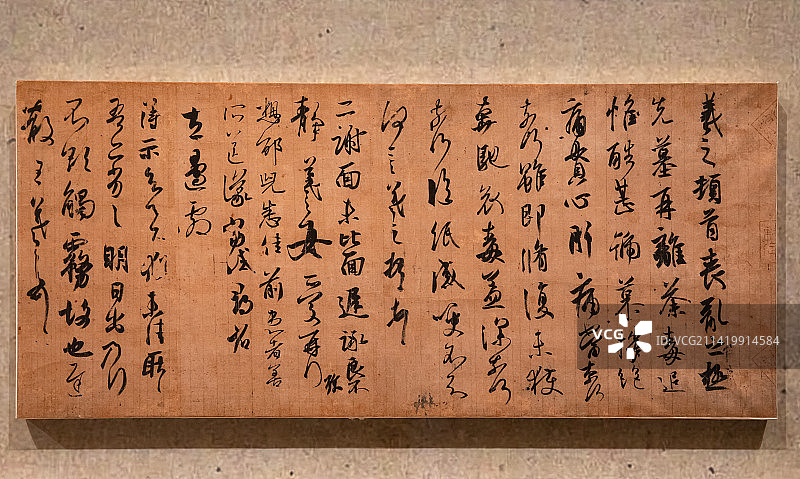 羲之頓首喪亂之極
先墓再離荼毒追
惟酷甚號慕摧絶
痛貫心肝痛當奈何
奈何雖即脩復未獲
奔馳哀毒益深奈何
奈何臨紙感哽不知
何言羲之頓首頓首
二謝面未比面遲詠良不
靜羲之女愛再拜
想邵兒悉佳前患者善
所送議當試尋省
左邊劇
得示知足下猶未佳耿耿
吾亦劣劣明日出乃行
不欲觸霧故也遲
散王羲之頓首
VCG
ID:VCG211419914584